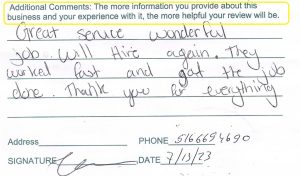 Additional Comments: The more information you provide about this
business and your experience with it, the more helpful your review will be.
Great service wonderful
job. Will Hire again. They
worked fast and got the job
done. Thank you for everything
Address PHONE 5166694690
SIGNATURE DATE 7/13/23